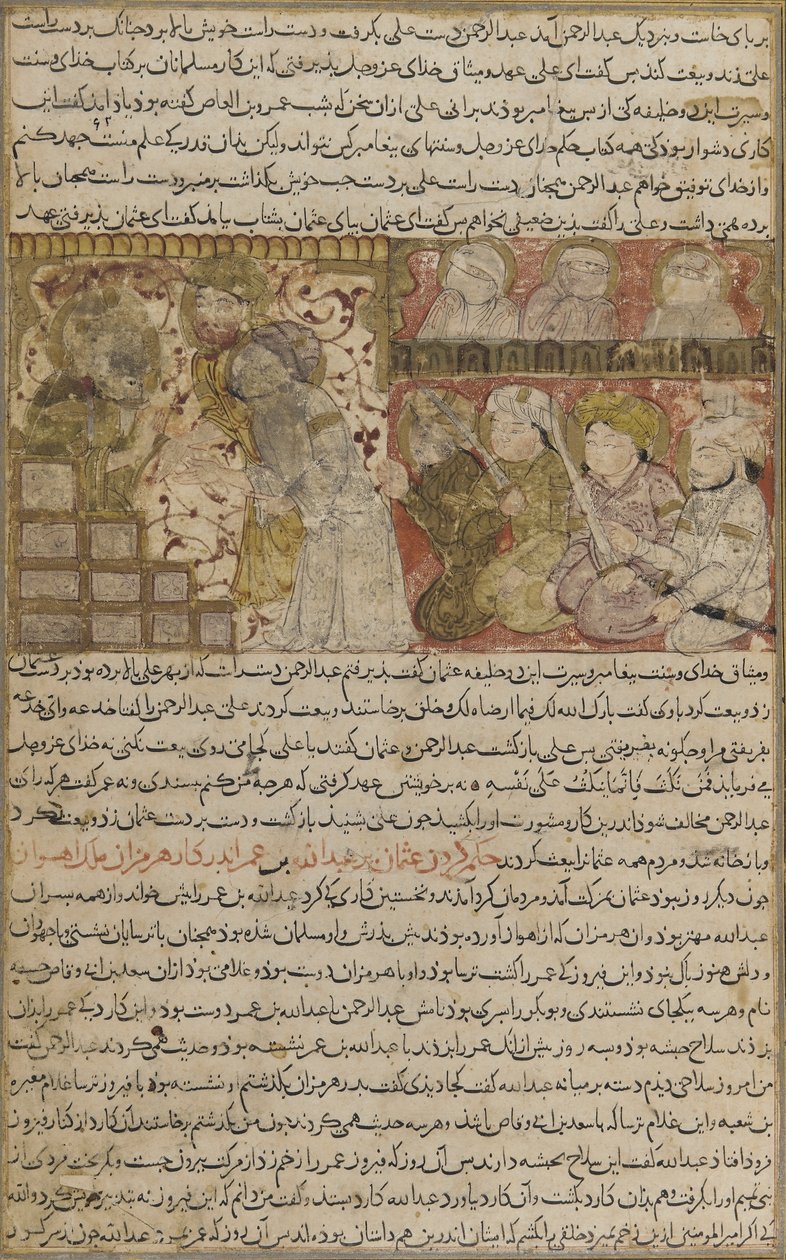 بر بای خاست و بنزدیک عبدالرحمن آمد عبدالرحمن دست علی بکرفت و دست راست خویش بالا برد جنانک بر دست راست
علی زند و بیعت کند بس کفت ای علی عهد و میثاق خدای عز و جل بذیرفتی که این کار مسلمانان بر کتاب خدای و سنت
و سیرت این دو خلیفه کی از بس بیغامبر بوذند برانی علی از ان سخن که شب عمرو بن العاص کفته بوذ یاذ امذ کفت این
کاری دشوار بوذ کی همه کتاب حکم خدای عز و جل و سنتهای بیغامبر کس نتواند ولیکن بذان قدر کی علم منست جهد کنم
و از خدای توفیق خواهم عبدالرحمن همجنان دست راست علی بر دست جب خویش بکذاشت بر منبر و دست راست همجنان بالا
برده همی داشت و علی را کفت بذین ضعیفی نخواهم بس کفت ای عثمان بیای عثمان بشتاب بیامذ کفت ای عثمان بذیرفتی عهد
و میثاق خدای و سنت بیغامبر و سیرت این دو خلیفه عثمان کفت بذیرفتم عبدالرحمن دست راست که از بهر علی بالا برده بوذ بر دست عثمان
زد و بیعت کرد با وی کفت بارک الله لک فیما و خلق برخاستند و بیعت کردند علی عبدالرحمن را کفتا خدعه وای خدعه
بفریفتی مرا و جکونه بفریفتی بس علی بازکشت عبدالرحمن و عثمان کفتند یا علی کجا می روی بیعت نکنی به خدای عز و جل
می فرماید فَمَنْ نَكَثَ فَاِنَّمَا يَنْكُثُ عَلَى نَفْسِهِ نه بر خویشتن عهد کرفتی که هرجه من کنم بسندی و نه عمر کفت هر که رای
عبدالرحمن مخالف شوذ اندرین کار و مشورت او را بکشید جون علی بشنید بازکشت و دست بر دست عثمان زد و بیعت کرد
و باز خانه شد و مردم همه عثمان را بیعت کردند حکم کردن عثمان بر عبدالله بن عمر اندر کار هرمزان ملک اهواز
جون دیکر روز بوذ عثمان بمزکت آمذ و مردمان کرد آمذند و نخستین کاری که کرد عبدالله بن عمر را بیش خواند و از همه بسران
عبدالله مهتر بوذ و ان هرمزان که از اهواز آورده بوذند بیش بذرش و او مسلمان شذه بوذ همجنان با ترسایان نشستی و با جهودان
و دلش هنوز باک نبوذ و این فیروز کی عمر را کشت ترسا بوذ و او با هرمزان دوست بوذ و غلامی بوذ از ان سعد بن ابی وقاص
نام و هر سه بیکجای نشستندی و بوبکر را بسری بوذ نامش عبدالرحمن با عبدالله بن عمر دوست بوذ و این کارد کی عمر را بذان
بزدند سلاح حبشه بوذ و سه روز بیش از انک عمر را بزدند با عبدالله بن عمر نشسته بوذ و حدیث همی کردند عبدالرحمن کفت
من امروز سلاحی دیذم دسته بر میانه عبدالله کفت کجا دیذی کفت بدر هرمزان بکذشتم او نشسته بوذ با فیروز ترسا غلام مغیره
بن شعبه و این غلام ترسا که با سعد بن ابی وقاص باشذ و هر سه حدیث همی کردند جون من بکذشتم برخاستند آن کارد از کنار فیروز
فرود افتاد عبدالله کفت این سلاح بحبشه دارند بس آن روز که فیروز عمر را زخم زد از مزکت بیرون جست و بکریخت مردی از
بنی تمیم او را بکرفت و هم بذان کارد بکشت و آن کارد بیاورد عبدالله کارد بستد و کفت من دانم که این فیروز نه بتدبیر خویش کرد والله
کی اکر امیر المومنین ازین زخم بمیرد خلقی را بکشم که ایشان اندرین هم داستان بوذه اند بس آن روز که عمر بمرد عبدالله جون از سر کور